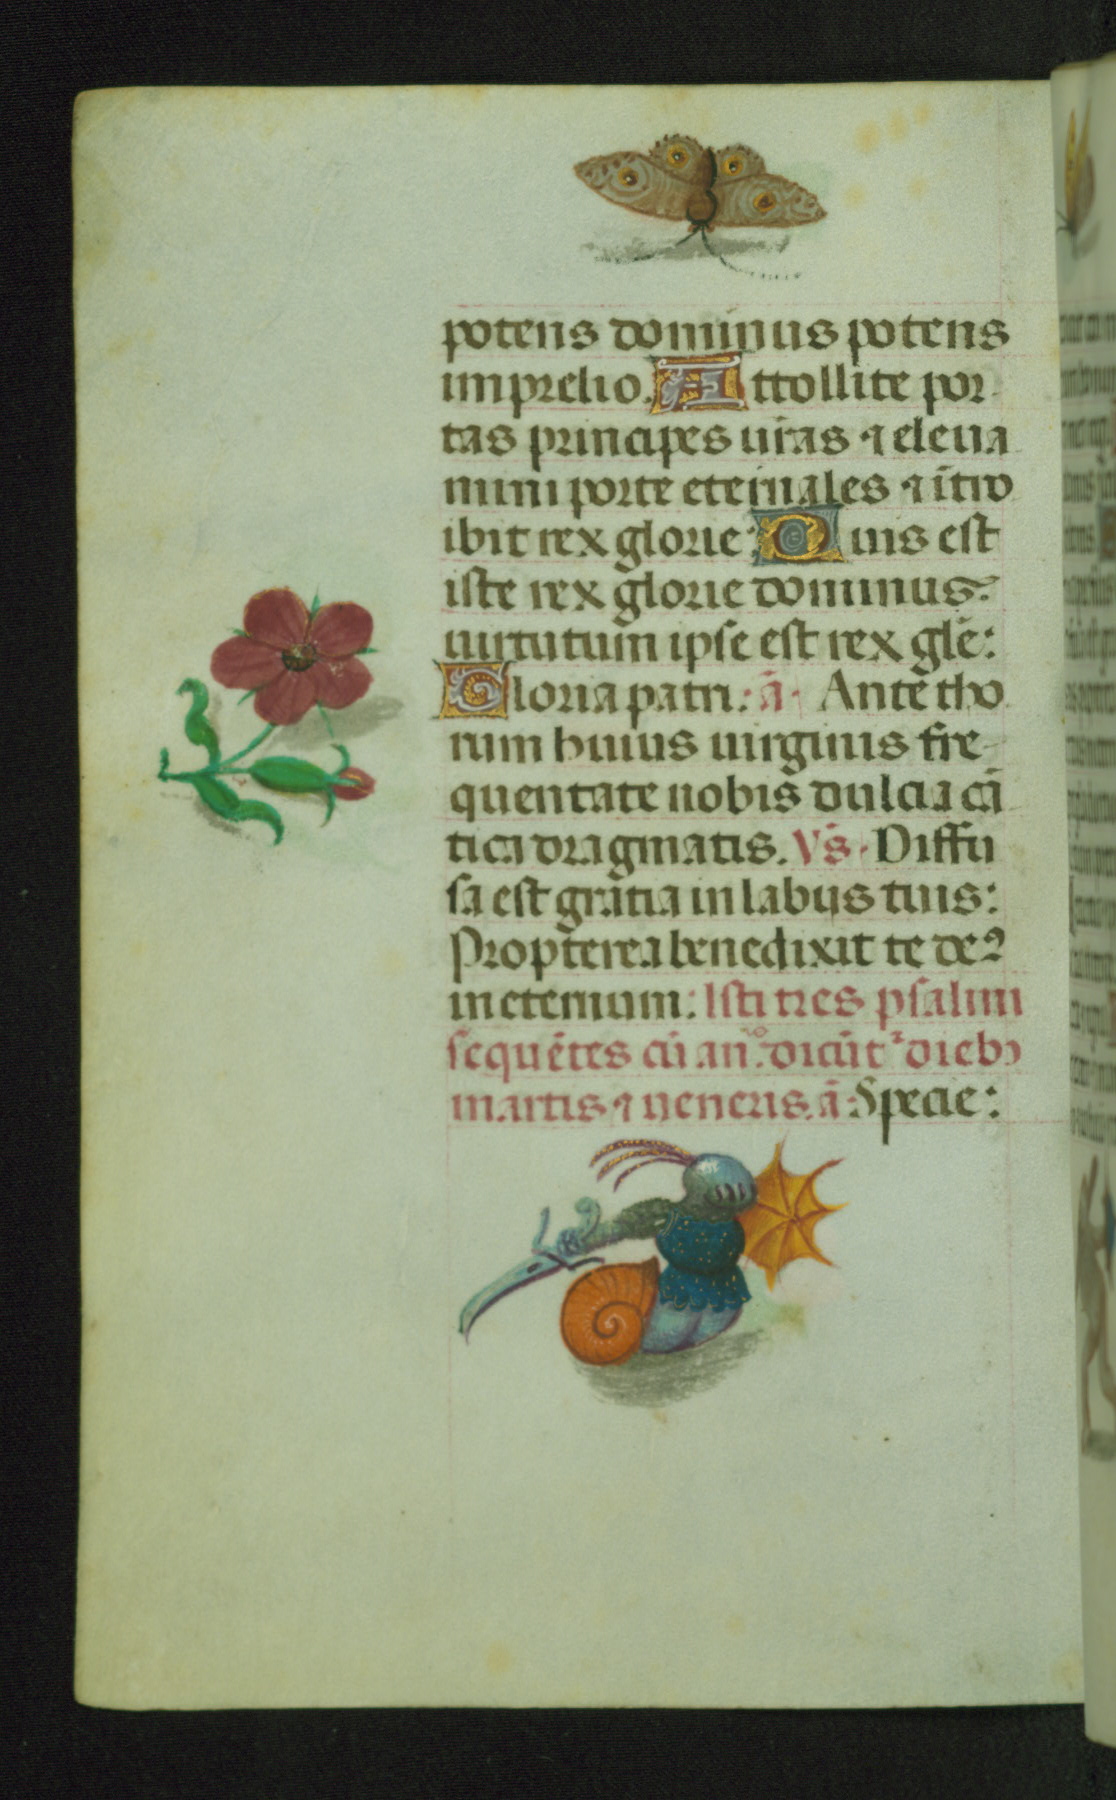 potens dominus potens
in prelio. Attollite por
tas principes uras ⁊ eleua
mini porte eternales ⁊ ītro
ibit rex glorie: Quis est
iste rex glorie dominus
uirtutum ipse est rex glē:
Gloria patri: ā. Ante tho
rum huius uirginis fre
quentate nobis dulcia cā
tica dragmatis. Vs̄. Diffu
sa est gratia in labijs tuis:
Propterea benedixit te deꝰ
in eternum: Isti tres psalmi
sequētes cū anᵒ. dicūt² diebꝫ
martis ⁊ ueneris. ā. Specie: